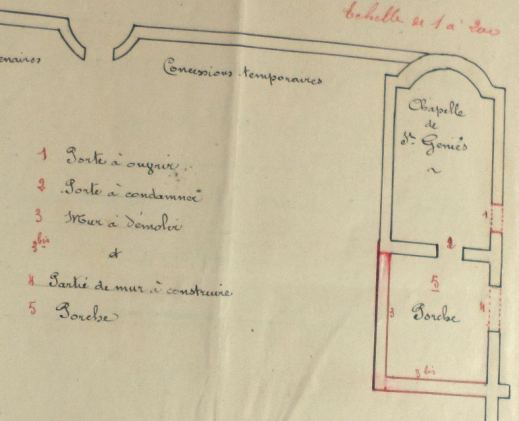 Echelle de 1 à 200
Concessions temporaires
Chapelle
de
St Geniès
1 Porte à ouvrir
2 Porte à condamner
3 Mur à démolir
3bis et
4 Partie de mur à construire
5 Porche
1
2
5
3
Porche
4
3 bis